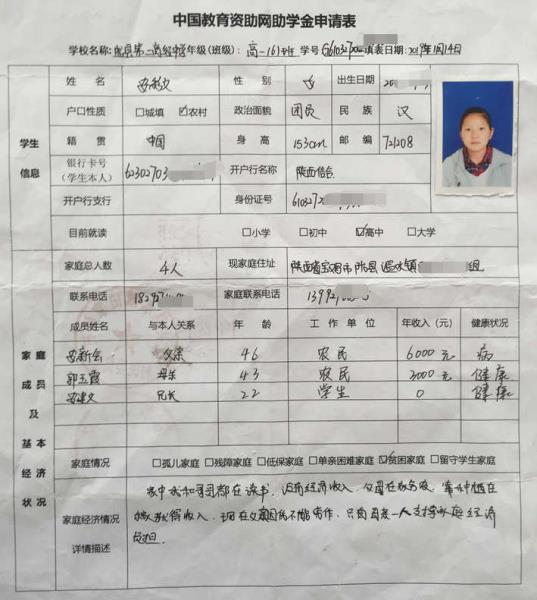 中国教育资助网助学金申请表
学校名称: 年级(班级): 高一16班 学号 填表日期: 2019年 月14日
学生信息
姓名 性别 女 出生日期 20
户口性质 □城镇 ☑农村 政治面貌 团员 民族 汉
籍贯 中国 身高 153cm 邮编 721208
银行卡号(学生本人) 62302703 开户行名称 陕西信合
开户行支行 身份证号 610327
目前就读 □小学 □初中 ☑高中 □大学
家庭成员及基本经济状况
家庭总人数 4人 现家庭住址 陕西省宝鸡市陇县 镇 组
联系电话 家庭联系电话 1399
成员姓名 与本人关系 年龄 工作单位 年收入(元) 健康状况
父亲 46 农民 6000元 病
郭玉霞 母亲 43 农民 3000元 健康
兄长 22 学生 0 健康
家庭情况 □孤儿家庭 □残障家庭 □低保家庭 □单亲困难家庭 ☑贫困家庭 □留守学生家庭
家庭经济情况详情描述
家中我和哥哥都在读书，没有经济收入，父母在家务农，靠
获得收入，现在父亲因病不能劳作，只有母亲一人支撑 经济